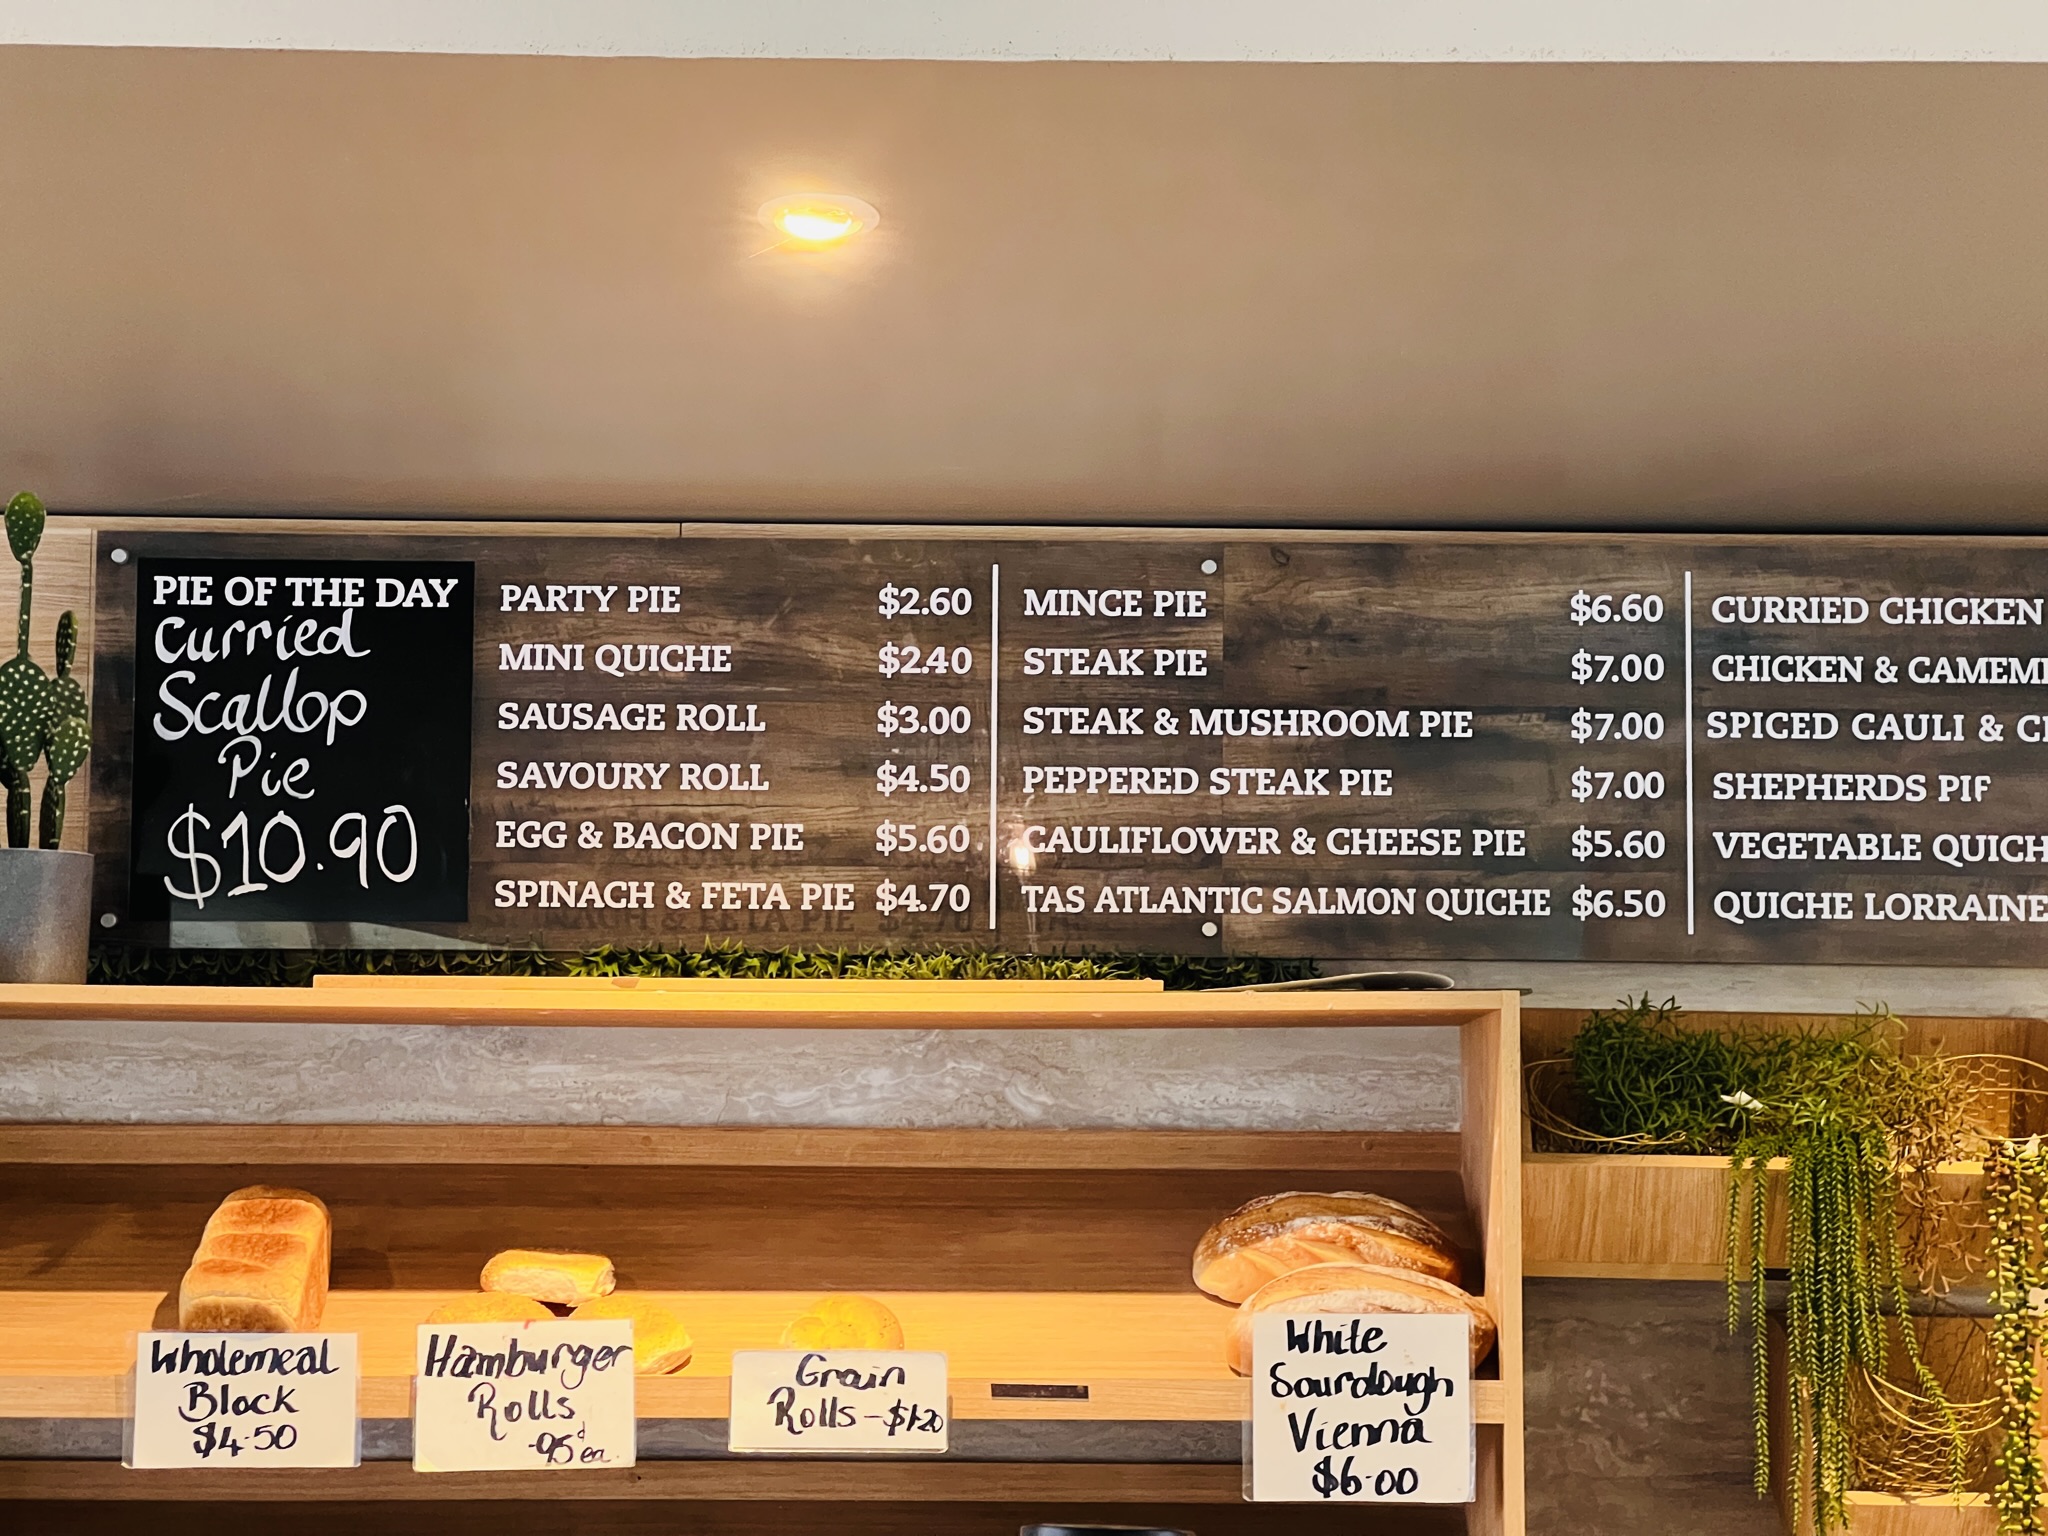 PIE OF THE DAY
Curried
Scallop
Pie
$10.90
PARTY PIE $2.60
MINI QUICHE $2.40
SAUSAGE ROLL $3.00
SAVOURY ROLL $4.50
EGG & BACON PIE $5.60
SPINACH & FETA PIE $4.70
MINCE PIE $6.60
STEAK PIE $7.00
STEAK & MUSHROOM PIE $7.00
PEPPERED STEAK PIE $7.00
CAULIFLOWER & CHEESE PIE $5.60
TAS ATLANTIC SALMON QUICHE $6.50
CURRIED CHICKEN
CHICKEN &
SPICED CAULI &
SHEPHERDS PIE
VEGETABLE
QUICHE LORRAINE
Wholemeal
Block
$4.50
Hamburger
Rolls
.95¢ ea.
Grain
Rolls - $1.20
White
Sourdough
Vienna
$6.00